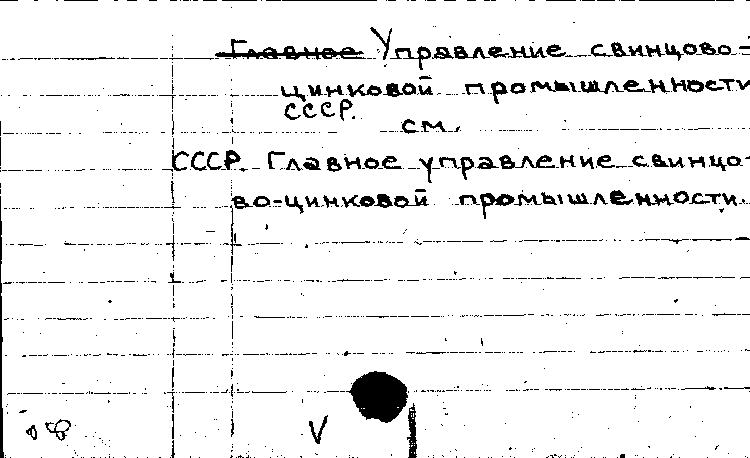 Главное Управление свинцово-
цинковой промышленности
СССР.
см.
СССР. Главное управление свинцо-
во-цинковой промышленности.
V